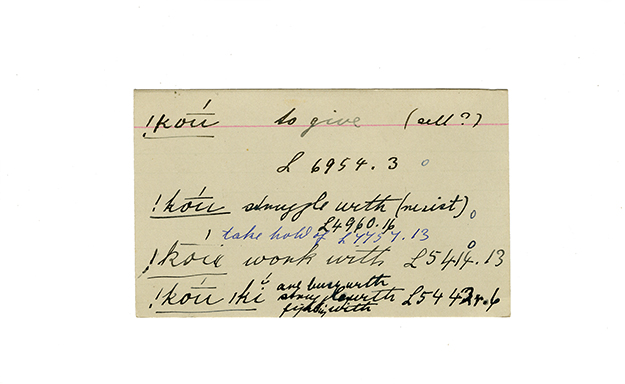 !kóu̅ to give (sell?)
L 6954.3 o
!kóu̅ struggle with (resist)o
L4960.16
! take hold of L4757.13
!kóu̅ work with L5414.13
!kóu̅ !kĭ are busy with
struggle with L5442r.6
fighting with